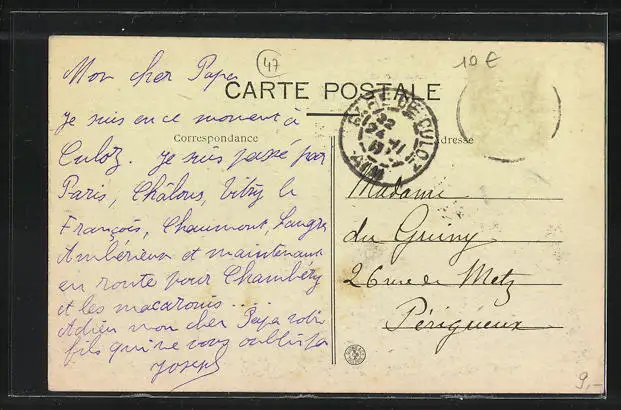 Mon cher Papa
47
10 €
CARTE POSTALE
Correspondance
Adresse
Je suis en ce moment à
Culoz. Je suis passé par
Paris, Châlons, Vitry le
François, Chaumont, Langres
Ambérieux et maintenant
en route pour Chambéry
et les macaronis....
Adieu mon cher Papa votre
fils qui ne vous oublie pas
Joseph
DE CULOZ
22
24 XI
AIN
Madame
du Gruiny
26 rue de Metz
Périgueux
9,-